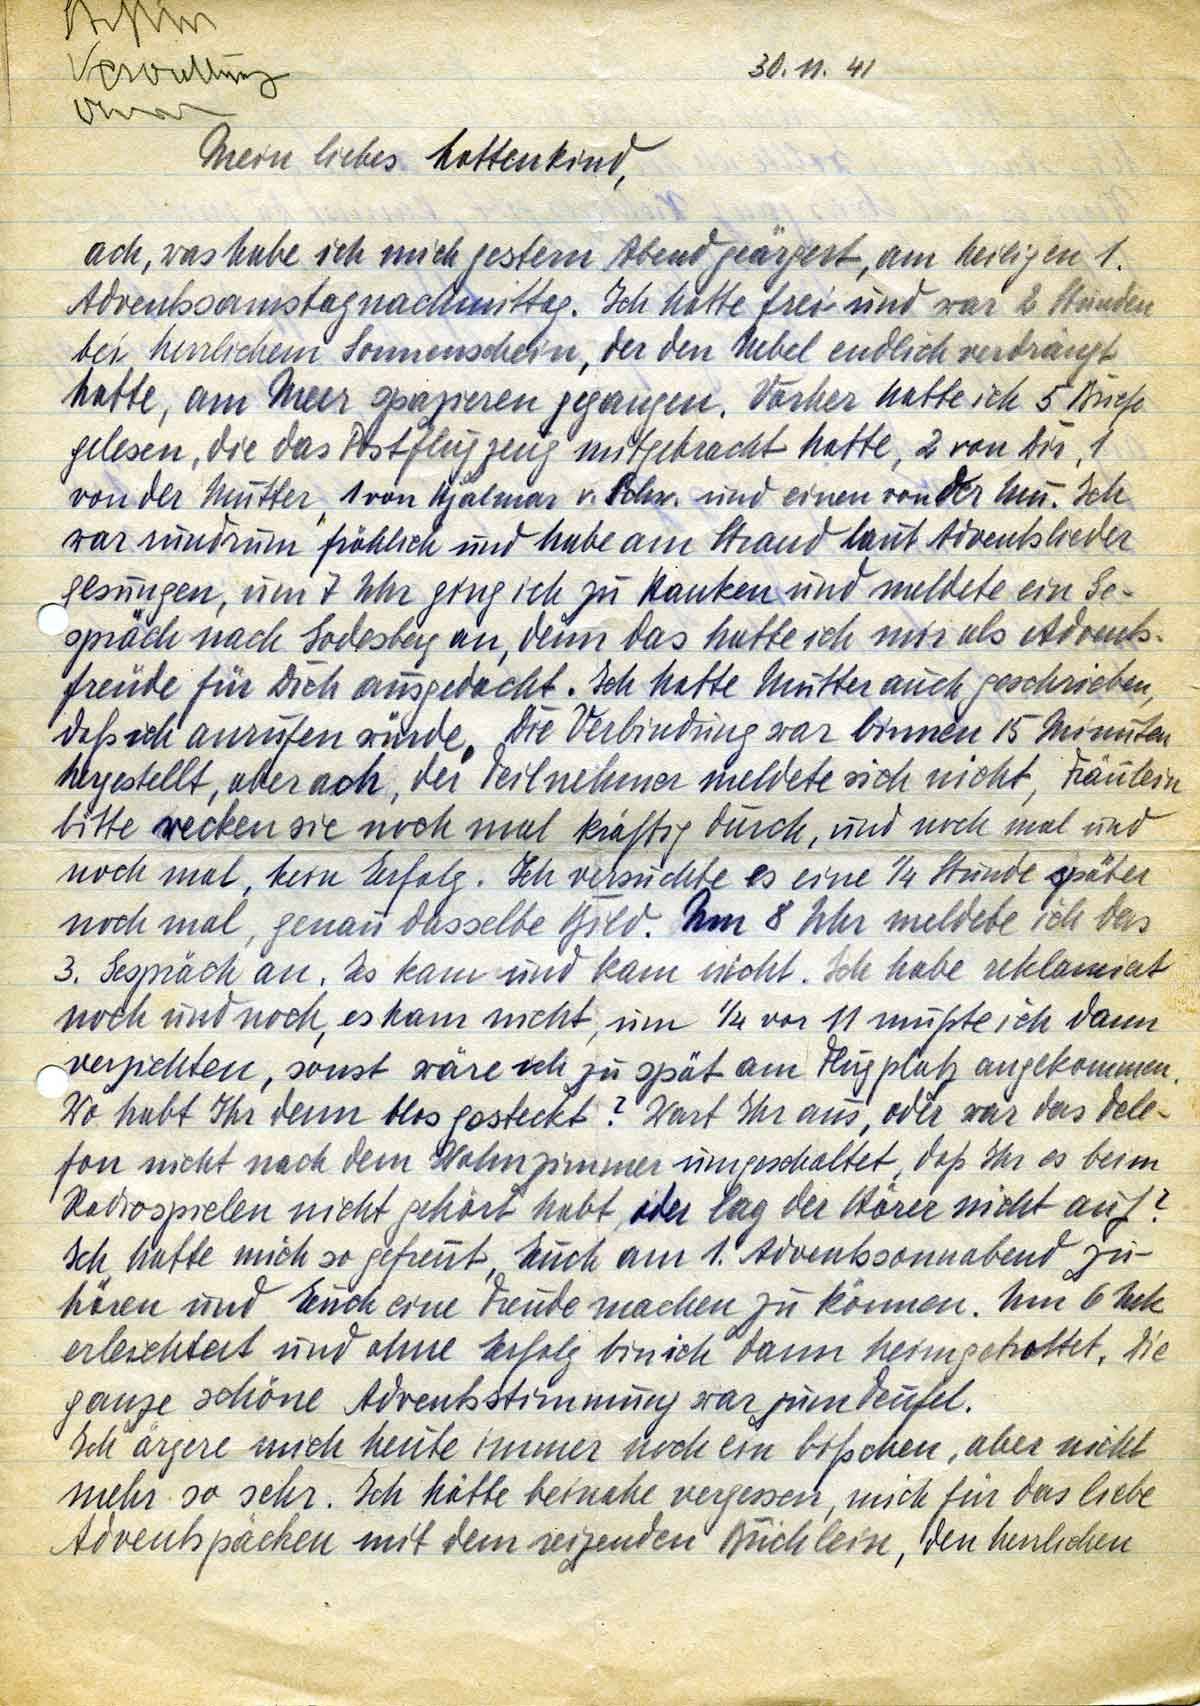 Verwaltung
30.11.41
Mein liebes Lottenkind,
ach, was habe ich mich gestern Abend geärgert, am heiligen 1.
Adventssamstagnachmittag. Ich hatte frei und war 2 Stunden
bei herrlichem Sonnenschein, der den Nebel endlich verdrängt
hatte, am Meer spazieren gegangen. Vorher hatte ich 5 Briefe
gelesen, die das Postflugzeug mitgebracht hatte, 2 von Dir, 1
von der Mutter, 1 von Hjalmar v. Schw. und einen von der Mu. Ich
war rundrum fröhlich und habe am Strand laut Adventslieder
gesungen, um 7 Uhr ging ich zu und meldete ein Ge-
spräch nach Godesberg an, denn das hatte ich mir als Advents-
freude für Dich ausgedacht. Ich hatte Mutter auch geschrieben,
daß ich anrufen würde. Die Verbindung war binnen 15 Minuten
hergestellt, aber ach, der Teilnehmer meldete sich nicht, Fräulein
bitte wecken sie noch mal kräftig durch, und noch mal und
noch mal, kein Erfolg. Ich versuchte es eine 1/4 Stunde später
noch mal, genau dasselbe Bild. Um 8 Uhr meldete ich das
3. Gespräch an. Es kam und kam nicht. Ich habe reklamiert
noch und noch, es kam nicht, um 1/4 vor 11 mußte ich dann
verzichten, sonst wäre ich zu spät am Flugplatz angekommen.
Wo habt Ihr denn blos gesteckt? Wart Ihr aus, oder war das Tele-
fon nicht nach dem Wohnzimmer umgeschaltet, daß Ihr es beim
Radiospielen nicht gehört habt, oder lag der Hörer nicht auf?
Ich hatte mich so gefreut, Euch am 1. Adventssonnabend zu
hören und Euch eine Freude machen zu können. Um 6 Mk
erleichtert und ohne Erfolg bin ich dann heimgetrottet. Die
ganze schöne Adventsstimmung war zum Teufel.
Ich ärgere mich heute immer noch ein bißchen, aber nicht
mehr so sehr. Ich hätte beinahe vergessen, mich für das liebe
Adventspächen mit dem reizenden Büchlein, den herrlichen